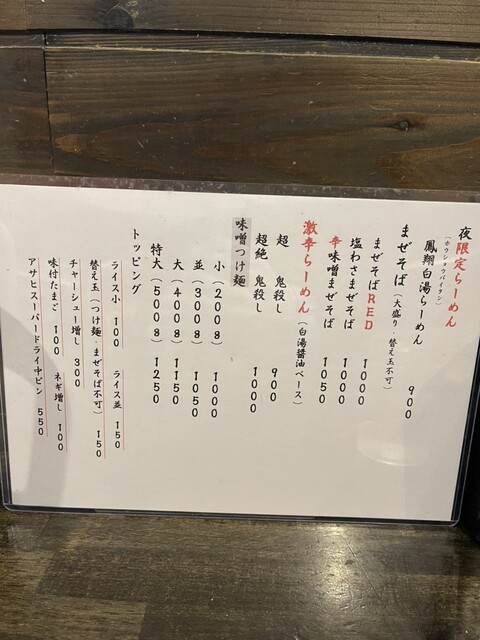 夜限定らーめん
(ホウショウパイタン)
鳳翔白湯らーめん 900
まぜそば (大盛り・替え玉不可)
まぜそばRED 1000
塩わさまぜそば 1000
辛味噌まぜそば 1050
激辛らーめん (白湯醤油ベース)
超 鬼殺し 900
超絶 鬼殺し 1000
味噌つけ麺
小 (200g) 1000
並 (300g) 1050
大 (400g) 1150
特大 (500g) 1250
トッピング
ライス小 100 ライス並 150
替え玉 (つけ麺・まぜそば不可) 150
チャーシュー増し 300
味付たまご 100 ネギ増し 100
アサヒスーパードライ中ビン 550